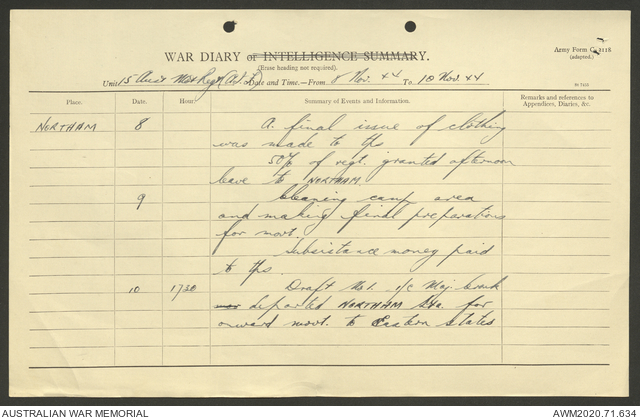 WAR DIARY or INTELLIGENCE SUMMARY.
Army Form C. 2118
(adapted.)
(Erase heading not required).
Unit 15 Aust Mot Regt (A.I.F) Date and Time.—From 8 Nov. 44 To 10 Nov. 44
Place. Date. Hour. Summary of Events and Information. Remarks and references to
Appendices, Diaries, &c.
NORTHAM 8 A final issue of clothing
was made to tps
50% of regt. granted afternoon
leave to NORTHAM.
9 Cleaning camp area
and making final preparations
for movt.
Subsistance money paid
to tps.
10 1730 Draft No1. i/c Maj.
departed NORTHAM Sta. for
onward movt. to Eastern States
AUSTRALIAN WAR MEMORIAL AWM2020.71.634